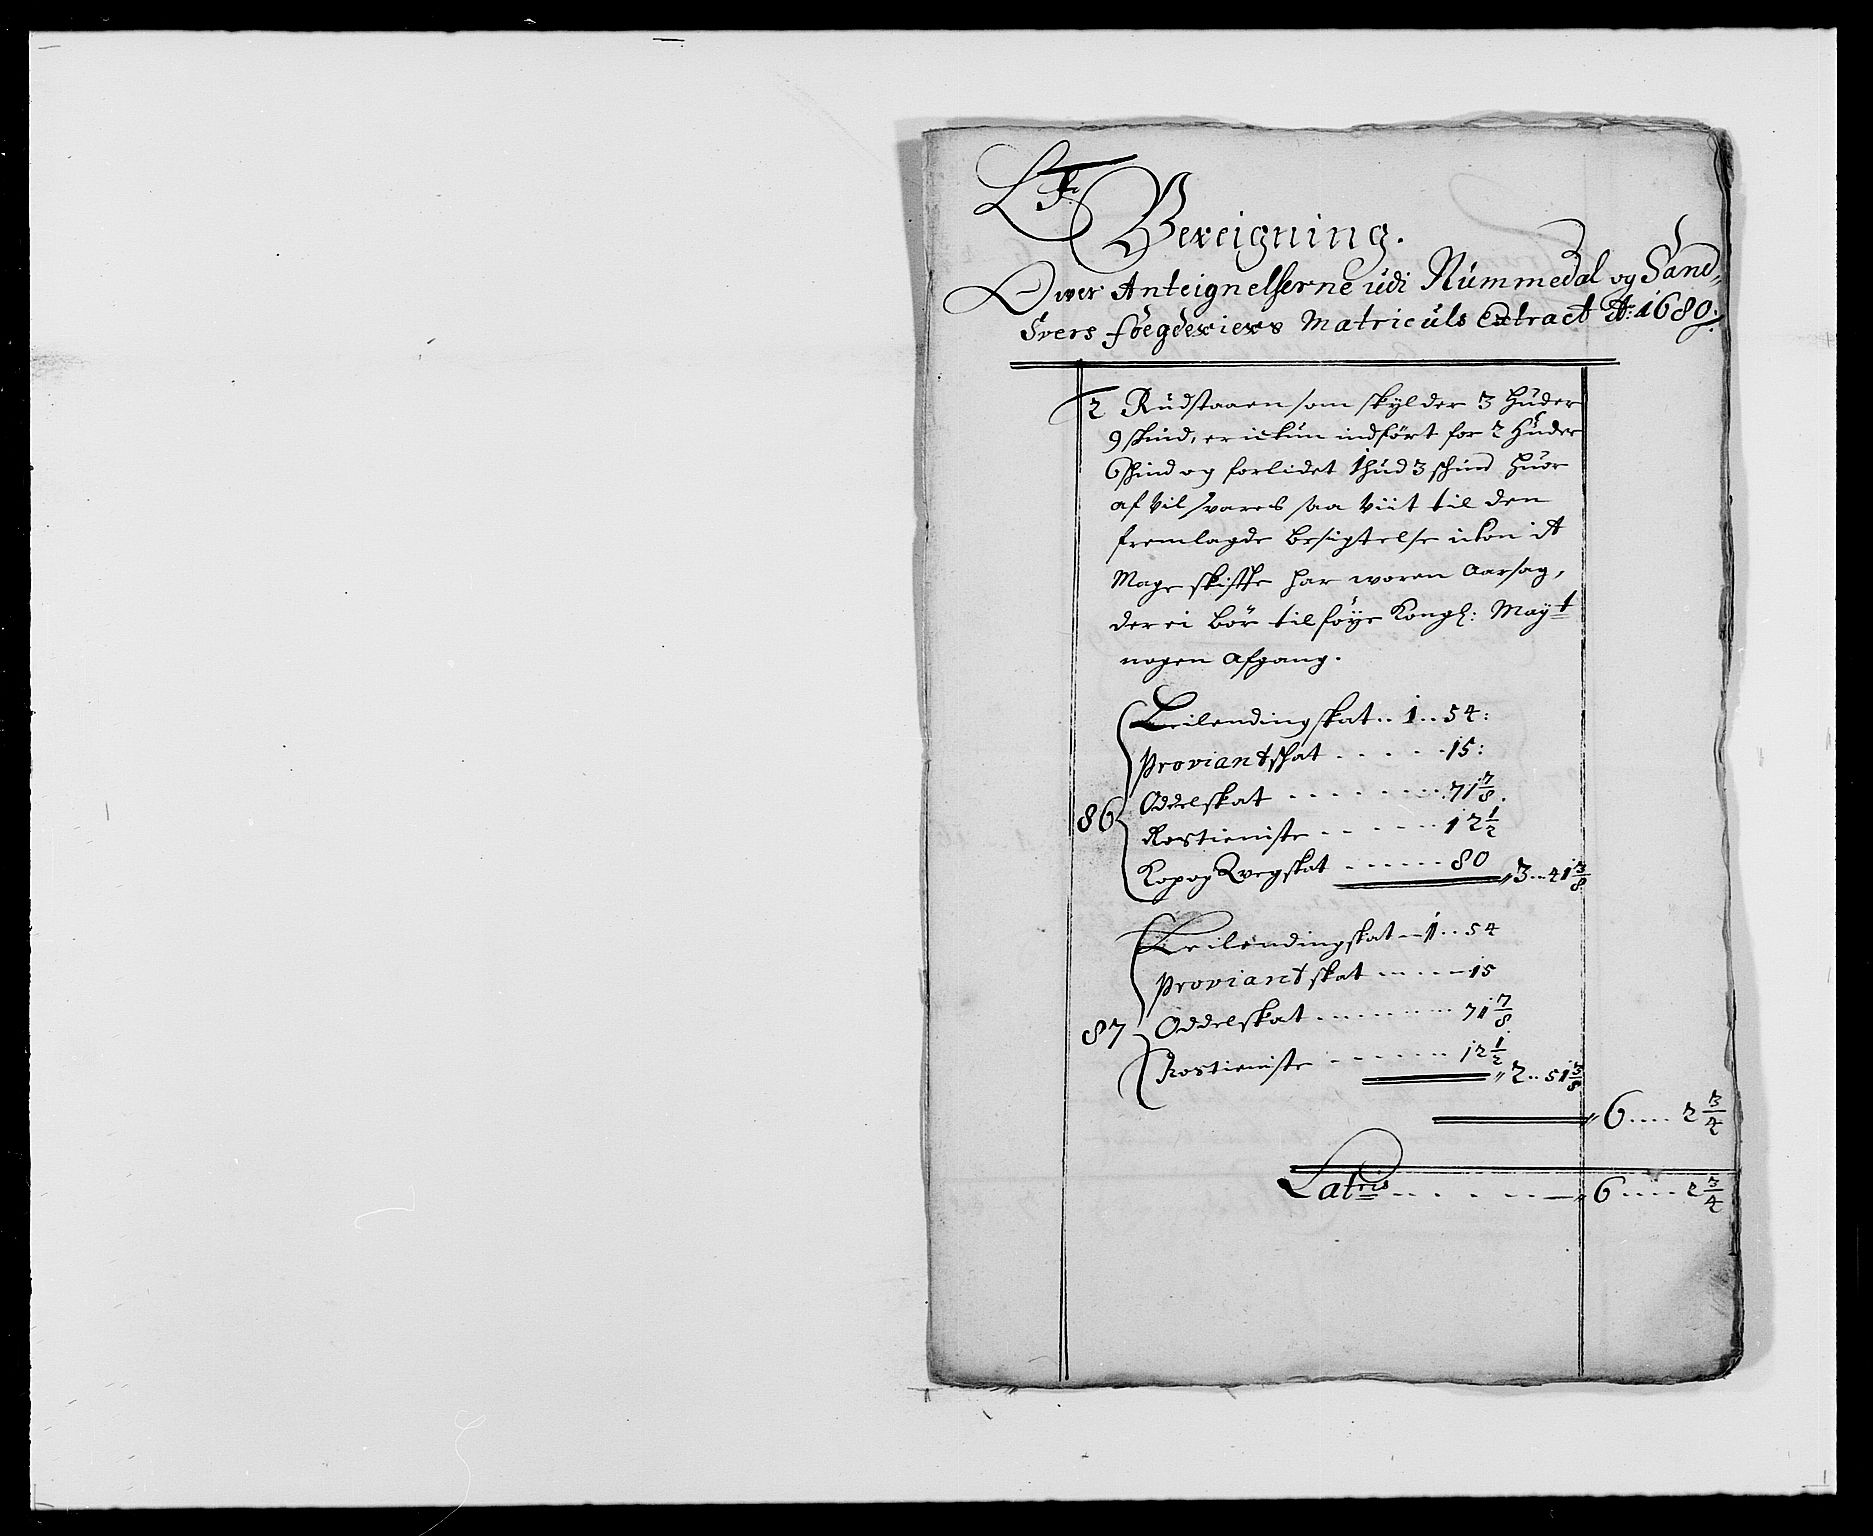 Bereigning.
Over Anteignelserne udi Nummedal og Sand-
Svers foegderiers Matriculs Extract A: 1680:
2 Rudstaaen som skylder 3 huder
9 skind, er ickun indført for 2 huder
6 skind og forlidet 1 hud 3 schind huor
af vil svares saa viit til den
fremlagde besigtelse icon it
Mageskiffte har woren Aarsag,
der ei bør tilføye Kongl: Mayt
nogen Afgang.
Leilendingskat .. 1 .. 54:
Proviantskat - - - - 15:
Oddelskat - - - - - 71 7/8.
86 Rostieniste - - - - - 12 1/2
Kopog Qvegskat - - - - 80 " 3 .. 41 3/8
Leilendingskat - 1 .. 54
Proviantskat - - - - 15
87 Oddelskat - - - - - 71 7/8
Rostieniste - - - - - 12 1/2
" 2 .. 51 3/8
" 6 .... 2 3/4
Latris - - - - - " 6 .... 2 3/4